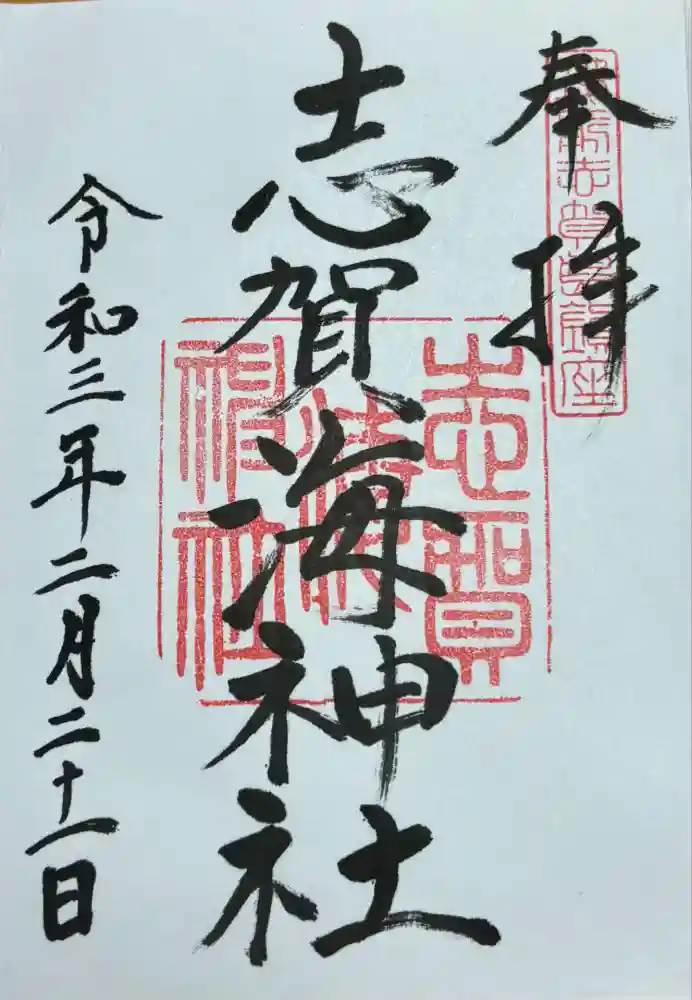 奉拝
志賀海神社
志賀海神社
令和三年二月二十一日